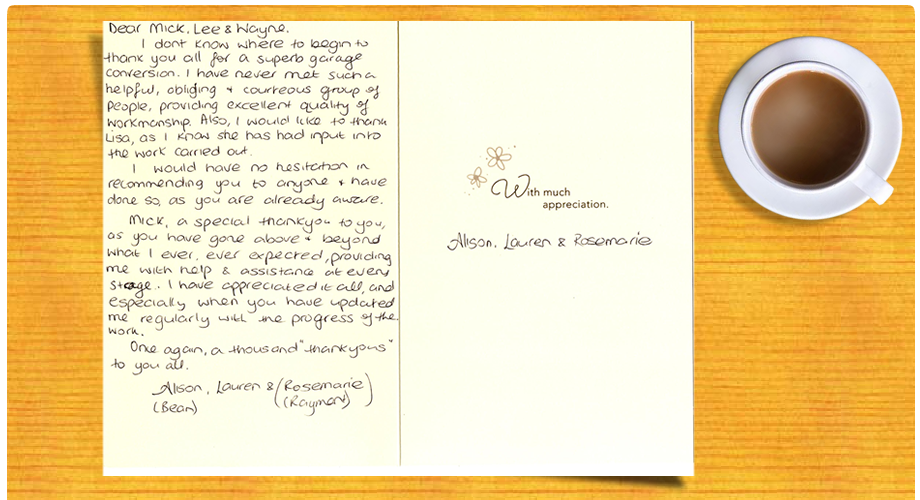 Dear Mick, Lee & Wayne.
I dont know where to begin to
thank you all for a superb garage
conversion. I have never met such a
helpful, obliging + courteous group of
people, providing excellent quality of
workmanship. Also, I would like to thank
Lisa, as I know she has had input into
the work carried out.
I would have no hesitation in
recommending you to anyone + have
done so, as you are already aware.
Mick, a special thankyou to you,
as you have gone above + beyond
what I ever, ever expected, providing
me with help & assistance at every
stage. I have appreciated it all, and
especially when you have updated
me regularly with the progress of the
work.
Once again, a thousand "thankyous"
to you all.
Alison, Lauren & (Rosemarie
(Bean) (Rayment))
With much
appreciation.
Alison, Lauren & Rosemarie